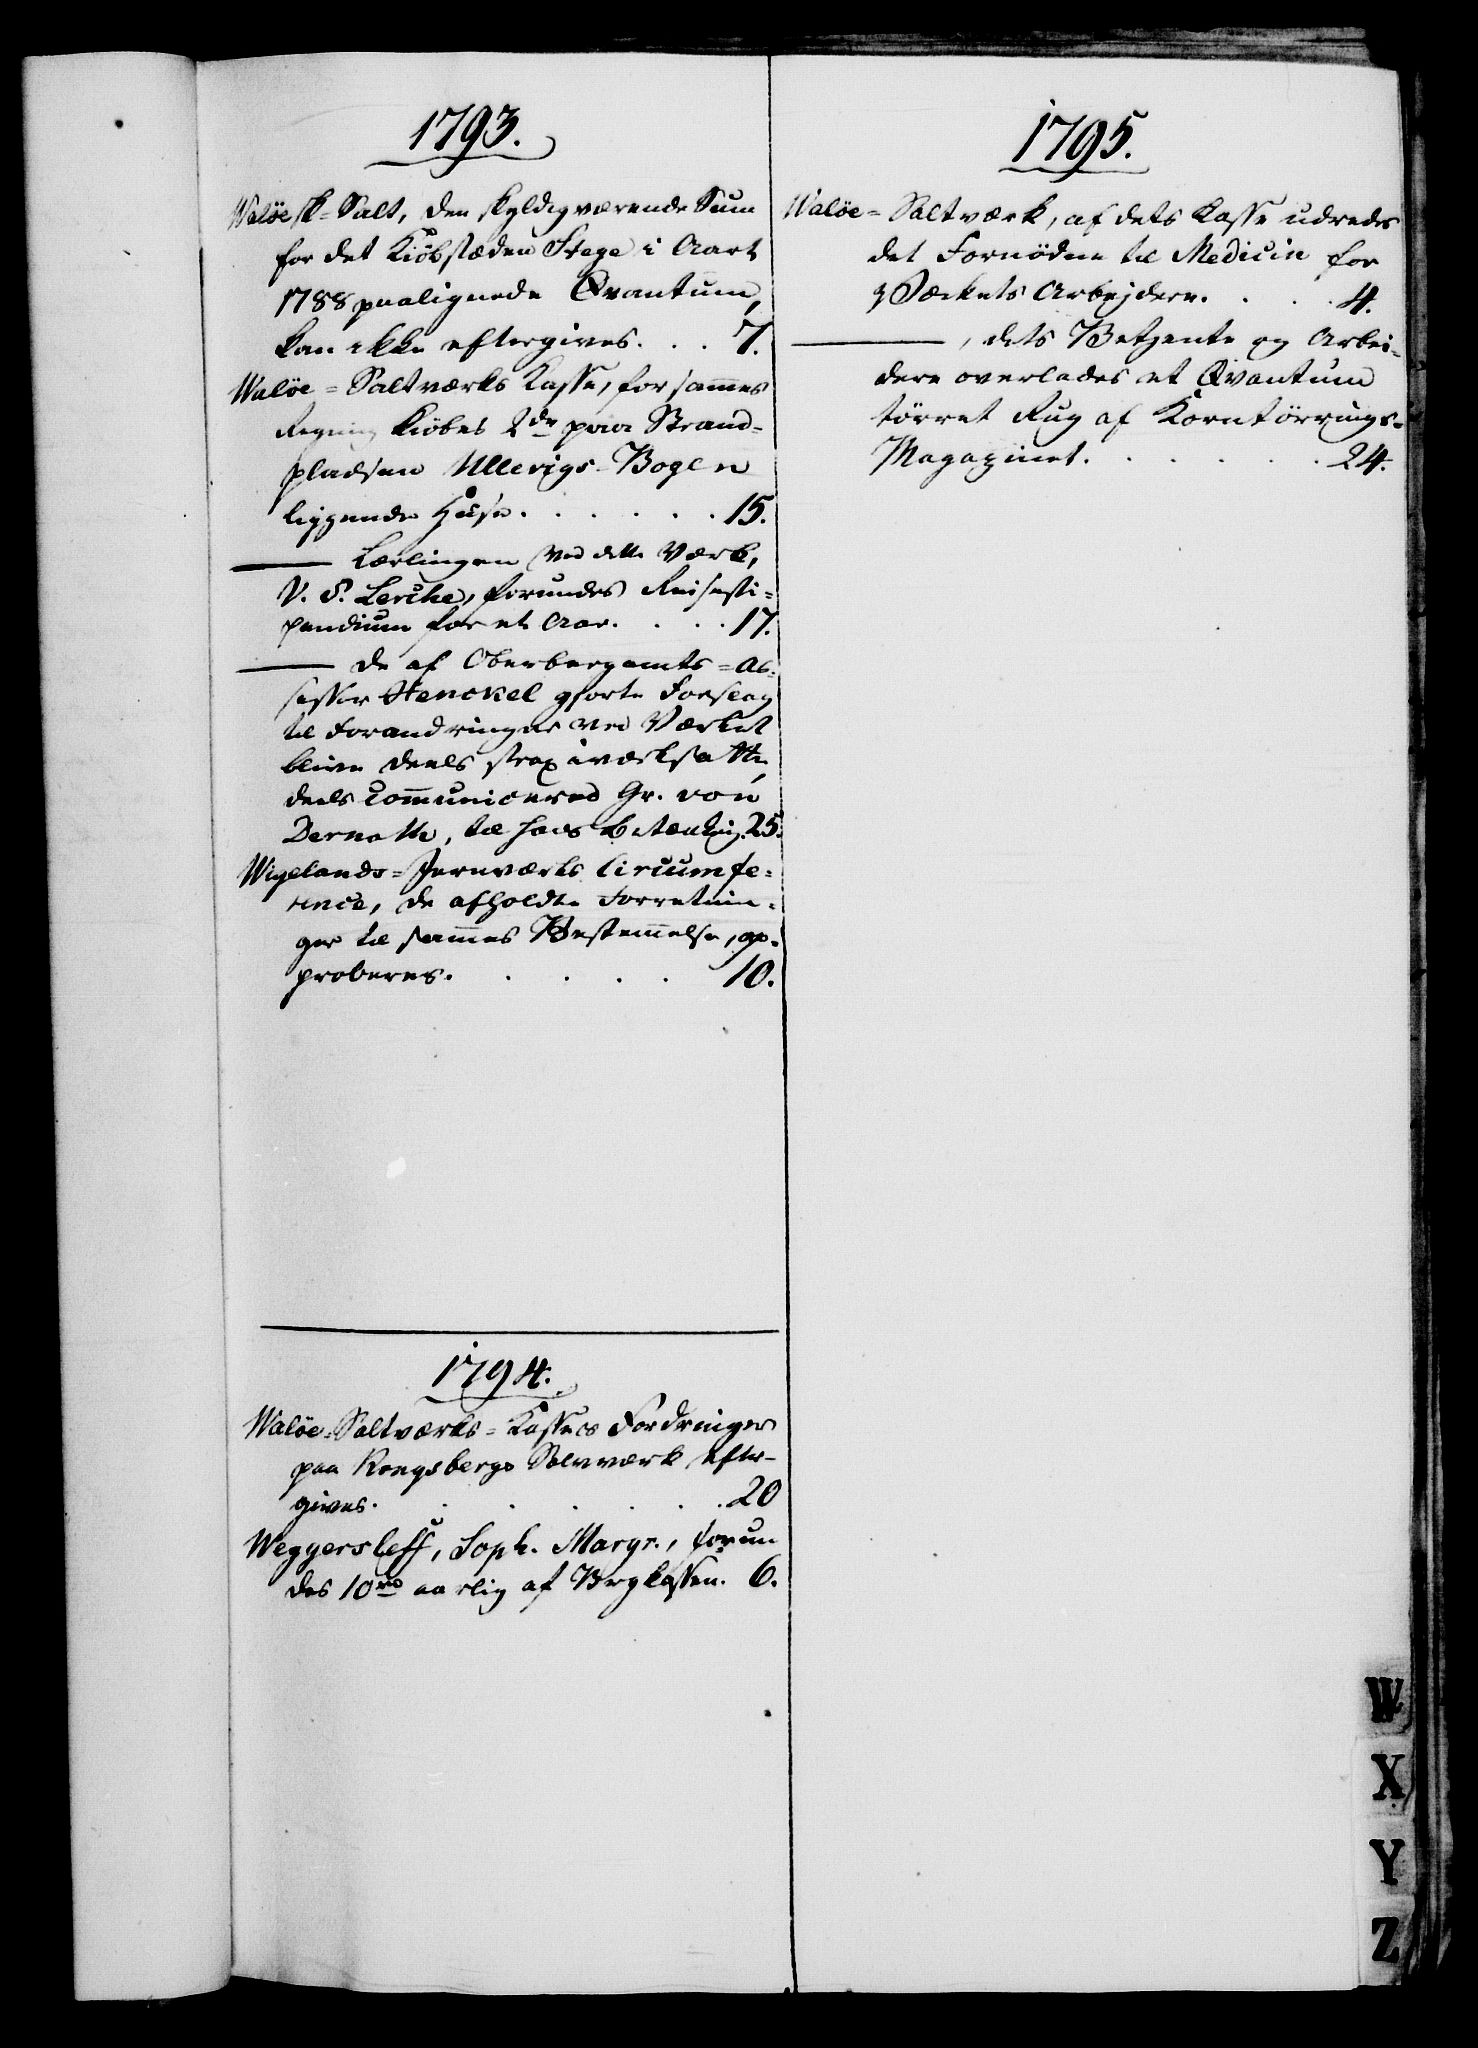 1793.
Waløesk-Salt, den skyldigværende Sum
for det Kiöbstæden Stege i Aaret
1788 paalignede Qvantum,
kan ikke eftergives. . . 7.
Waløe-Saltværks Kasse, for sammes
Regning kiöbes 2de paa Strand-
pladsen Ullevigs-Bogen
liggende Huse. . . . . . 15.
——— Lærlingen ved dette Værk,
V. S. Lerche, forundes Reisesti-
pendium for et Aar. . . . 17.
——— de af Oberbergamts-As-
sessor Henckel giorte Forslag
til Forandringer ved Værket
blive deels strax iværksatte,
deels communicered Gr. von
Dernath, til hans Betænkng. 25.
Wigelands-Jernværks Circumfe-
rence, de afholdte Forretnin-
ger til sammes Bestemmelse, ap-
proberes. . . . . 10.
1794.
Waløe-Saltværks-Kasses Fordringer
paa Kongsbergs Sølvværk efter-
gives. . . . . . 20
Weggersleff, Soph. Margr., forun
des 10 rd aarlig af Brgkassen. 6.
1795.
Waløe-Saltværk, af dets Kasse udredes
det Fornödne til Medicin for
Værkets Arbejdere. . . . 4.
———, dets Betjente og Arbei-
dere overlades et Qvantum
törret Rug af Korntörrings-
Magazinet. . . . . . 24.
W
X
Y
Z